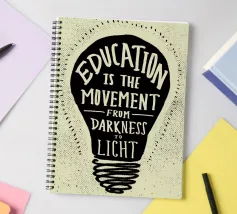 EDUCATION
IS THE
MOVEMENT
FROM
DARKNESS
TO
LIGHT